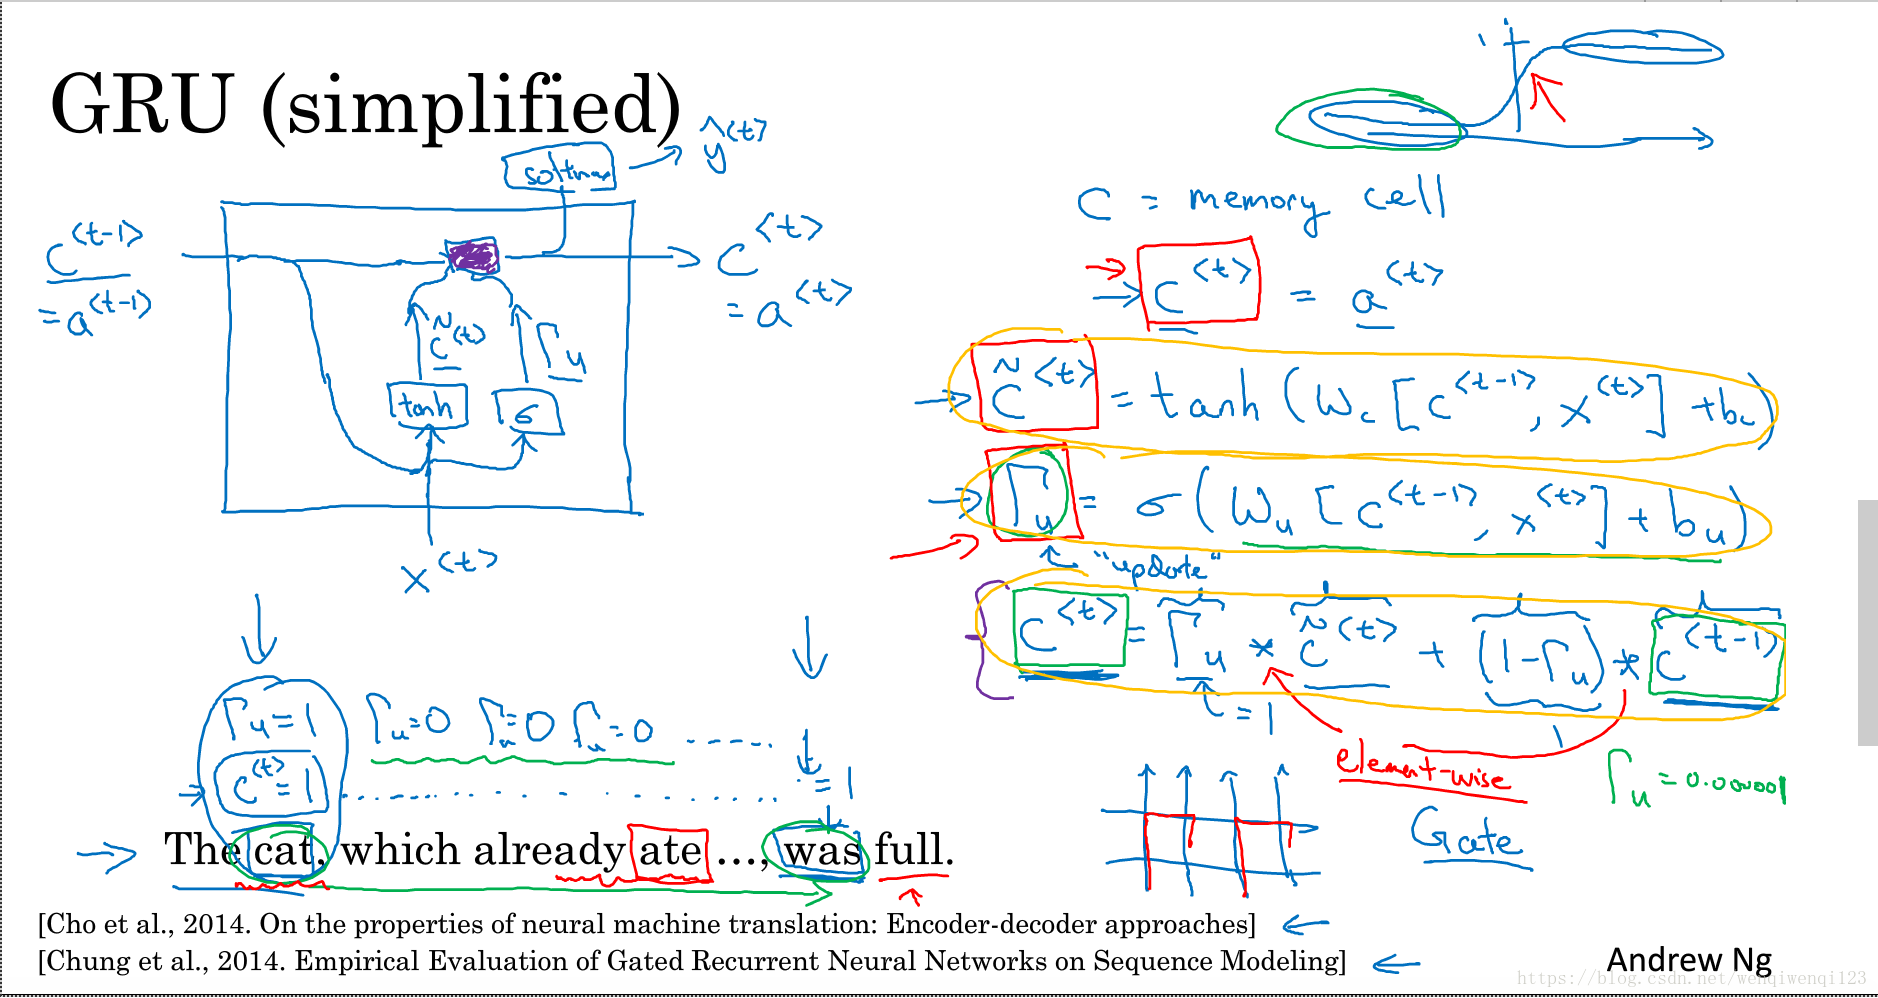 GRU (simplified)
softmax
ŷ<t>
c<t-1>
=a<t-1>
c<t>
=a<t>
c̃<t>
Γu
tanh
σ
x<t>
1
C = memory cell
c<t> = a<t>
c̃<t> = tanh (Wc [c<t-1>, x<t>] + bc)
Γu = σ (Wu [c<t-1>, x<t>] + bu)
"update"
c<t> = Γu * c̃<t> + (1-Γu) * c<t-1>
= 1
element-wise
Γu = 0.000001
Gate
Γu=1 Γu=0 Γu=0 Γu=0 ......
c<t>=1 ........ =1
The cat, which already ate ..., was full.
[Cho et al., 2014. On the properties of neural machine translation: Encoder-decoder approaches]
[Chung et al., 2014. Empirical Evaluation of Gated Recurrent Neural Networks on Sequence Modeling]
Andrew Ng
https://blog.csdn.net/wenqiwenqi123